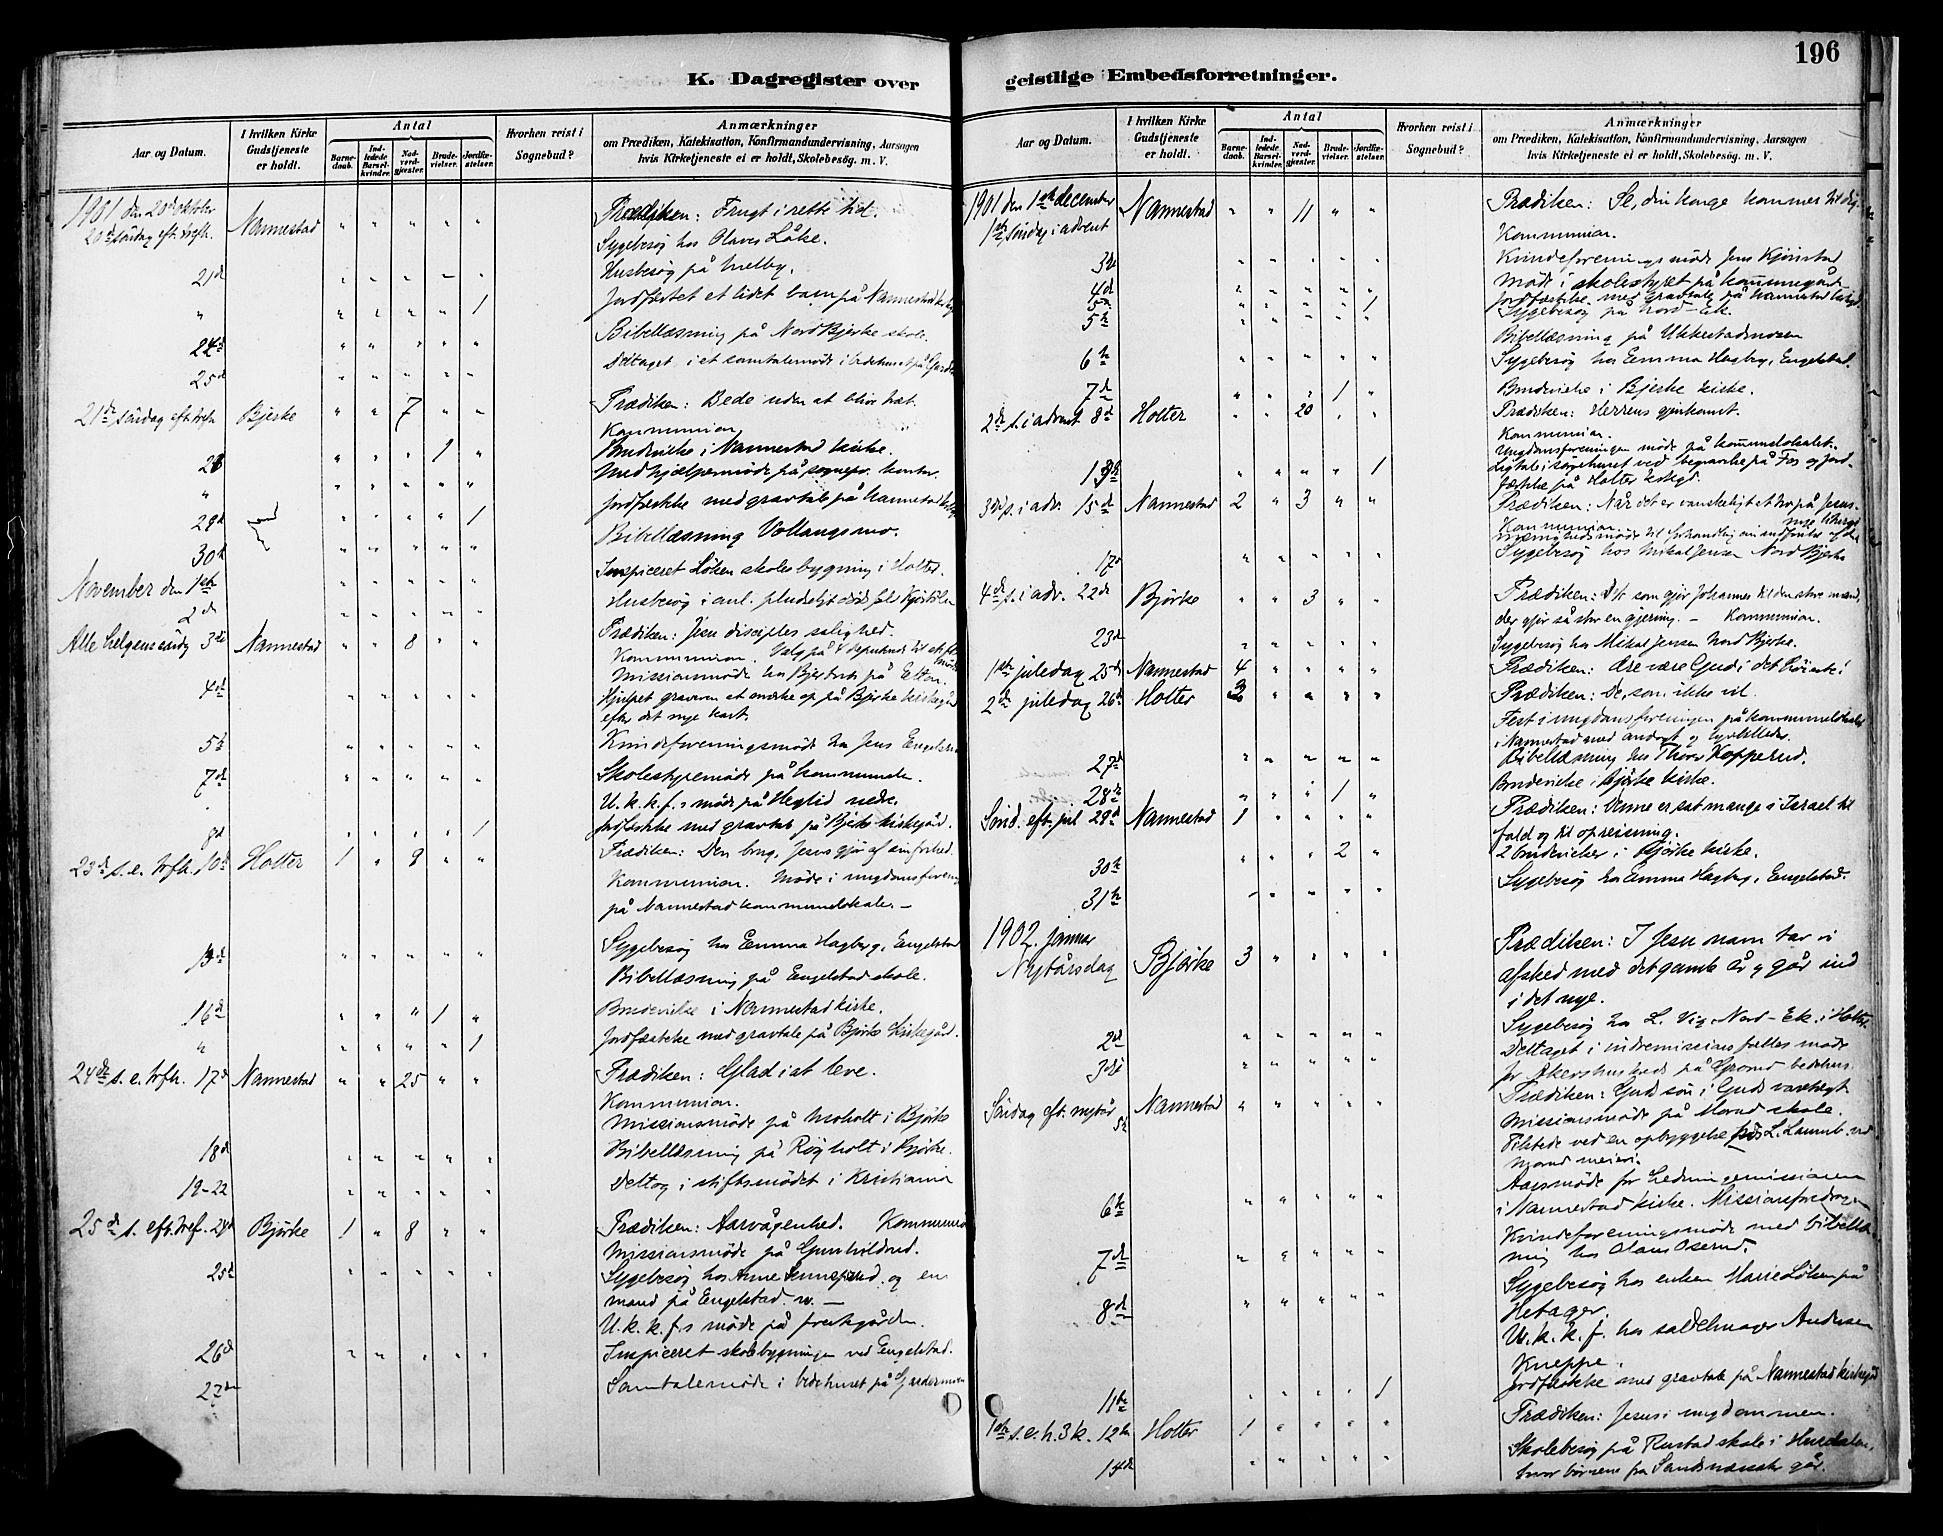 196
K. Dagregister over geistlige Embedsforretninger.
Aar og Datum.
I hvilken Kirke Gudstjeneste er holdt.
Antal
Barnedaab.
Indledede Barselkvinder.
Nadverdgjæster.
Brudevielser.
Jordfæstelser.
Hvorhen reist i Sognebud?
Anmærkninger
om Prædiken, Katekisation, Konfirmandundervisning, Aarsagen
hvis Kirketjeneste ei er holdt, Skolebesøg. m. V.
1901 den 20de oktober
20de søndag eft. trefh. Nannestad " " " " " Prædiken: Frugt i rette tid.
Sygebesøg hos
21de " " " " " Husbesøg på Melby.
" " " " " 1 Jordfæstet et lidet barn på Nannestad
24de " " " " " Bibellæsning på Nord Bjerke skole.
25de " " " " " Deltaget i et samtalemøde i bedehuset på
21de søndag eft. trefh. Bjerke " " 7 " " Prædiken: Bede uden at blive træt.
Kommunion
" " " 1 " Brudevielse i Nannestad kirke.
" " " " " Medhjælpermøde på sognepr. kontor.
29de " " " " 1 Jordfæstelse med gravtale på Nannestad
30te " " " " " Bibellæsning Vollaugsmo.
November den 1ste " " " " " Inspiceret Løken skolebygning i Holter.
2de " " " " " Husbesøg i anl. pludseligt dødsfald
Alle helgens søndag 3de Nannestad " " 8 " " Prædiken: Jesu disciples salighed.
Kommunion. Valg på
Missionsmøde hos på
4de " " " " " Hjulpet graveren at mærke op på Bjerke kirkegård
efter det nye kart.
5te " " " " " Kvindeforeningsmøde hos Jens
7de " " " " " Skolestyremøde på kommunelok.
U. k. k. f.s møde på Heglid nedre.
8de " " " " 1 Jordfæstelse med gravtale på Bjerke kirkegård.
23de s. e. trfh. 10de Holter 1 " 9 " " Prædiken: Den brug, Jesus gjør af sin
Kommunion. Møde i ungdomsforening
på Nannestad kommunelokale. –
13de " " " " " Sygebesøg hos Emma Hagberg, Engelstad
Bibellæsning på Engelstad skole.
16de " " " 1 " Brudevielse i Nannestad kirke.
" " " " " 1 Jordfæstelse med gravtale på Bjerke kirkegård.
24de s. e. trfh. 17de Nannestad " " 25 " " Prædiken: Glad i at leve.
Kommunion.
Missionsmøde på Moholt i Bjørke
18de " " " " " Bibellæsning på Røgholt i Bjørke.
19–22 " " " " " Deltog i stiftsmødet i Kristiania
25de s. eft. tref. 24de Bjørke 1 " 8 " " Prædiken: Aarvågenhed. Kommunion
Missionsmøde på Gunhildrud.
25de " " " " " Sygebesøg hos Anne og en
mand på Engelstad. –
U. k. k. f.s møde på prestegården.
26de " " " " " Inspiceret skolebygningen ved Engelstad.
27de Samtalemøde i bedehuset på Gardermoen
Aar og Datum.
I hvilken Kirke Gudstjeneste er holdt.
Antal
Barnedaab.
Indledede Barselkvinder.
Nadverdgjæster.
Brudevielser.
Jordfæstelser.
Hvorhen reist i Sognebud?
Anmærkninger
om Prædiken, Katekisation, Konfirmandundervisning, Aarsagen
hvis Kirketjeneste ei er holdt, Skolebesøg. m. V.
1901 den 1ste december
1ste søndag i advent Nannestad " " 11 " " Prædiken: Se, din konge kommer til dig.
Kommunion.
3de " " " " " Kvindeforeningsmøde Jens Kjønstad
4de " " " " " Møde i skolestyret på kommunegård
5te " " " " 1 Jordfæstelse med gravtale på Nannestad
5te " " " " " Sygebesøg på Nord-Ek.
Bibellæsning på Ukkestadmoen
6te " " " " " Sygebesøg hos Emma Hagberg, Engelstad.
7de " " " 1 " Brudevielse i Bjerke kirke.
2de s. i advent 8de Holter " " 20 " " Prædiken: Herrens gjenkomst.
Kommunion.
Ungdomsforeningen møde på kommunelokalet.
13de " " " " 1 Ligtale i sørgehuset ved begravelse på Fos og jordfæstelse på Holter kirkegd.
3de s. i adv. 15de Nannestad 2 " 3 " " Prædiken: Når det er vanskeligt at tro på Jesus.
Kommunion.
17de " " " Sygebesøg hos Mikal Jensen Nord Bjerke
4de s. i adv. 22de Bjørke " " 3 " " Prædiken: Det som gjør Johannes til den store mand,
der gjør så stor en gjerning. – Kommunion.
23de " " " " " Sygebesøg hos Mikal Jensen Nord Bjerke.
1ste juledag 25de Nannestad 4 " " " " Prædiken: Ære være Gud i det høieste!
2de juledag 26de Holter 3 " " " " Prædiken: De, som ikke vil.
Fest i ungdomsforeningen på kommunelokalet
i Nannestad med andagt og lysbilleder.
27de " " " " " Bibellæsning hos Thorer Kopperud.
28de " " " 1 " Brudevielse i Bjørke kirke.
Sønd. eft. jul 29de Nannestad 1 " " " " Prædiken: Denne er sat mange i Israel til
fald og til opreisning.
30te " " " 2 " 2 brudevielser i Bjørke kirke.
31te " " " " " Sygebesøg hos Emma Hagberg, Engelstad.
1902. januar
Nytårsdag Bjørke 3 " " " " Prædiken: I Jesu navn tar vi
afsked med det gamle år og går ind
i det nye.
2de " " " " " Sygebesøg hos L. Nord-Ek. i Holter.
3die " " " " " Deltaget i indremissions fælles møde
for Akershus på bedehus
Søndag eft. nytår 5te Nannestad " " " " " Prædiken: Guds søn i Guds varetægt
Missionsmøde på Maura skole.
Tilstede ved en opbyggelse hos L. ved
Maura meieri.
6te " " " " " Aarsmøde for hedningemissionen
i Nannestad kirke. Missionsforedrag
7de " " " " " Kvindeforeningsmøde med bibellæsning hos Olaus Oserud.
8de " " " " " Sygebesøg hos enken Marie Løken på
Hetager.
U. k. k. f. hos sadelmager Andersen
Kneppe.
11te " " " " 1 Jordfæstelse med gravtale på Nannestad kirkegård
1ste s. e. h. 3 k. 12te Holter 1 " " " " Prædiken: Jesus i ungdommen.
14de " " " " " Skolebesøg på Rustad skole i Hurdalen,
hvor børnene fra går.